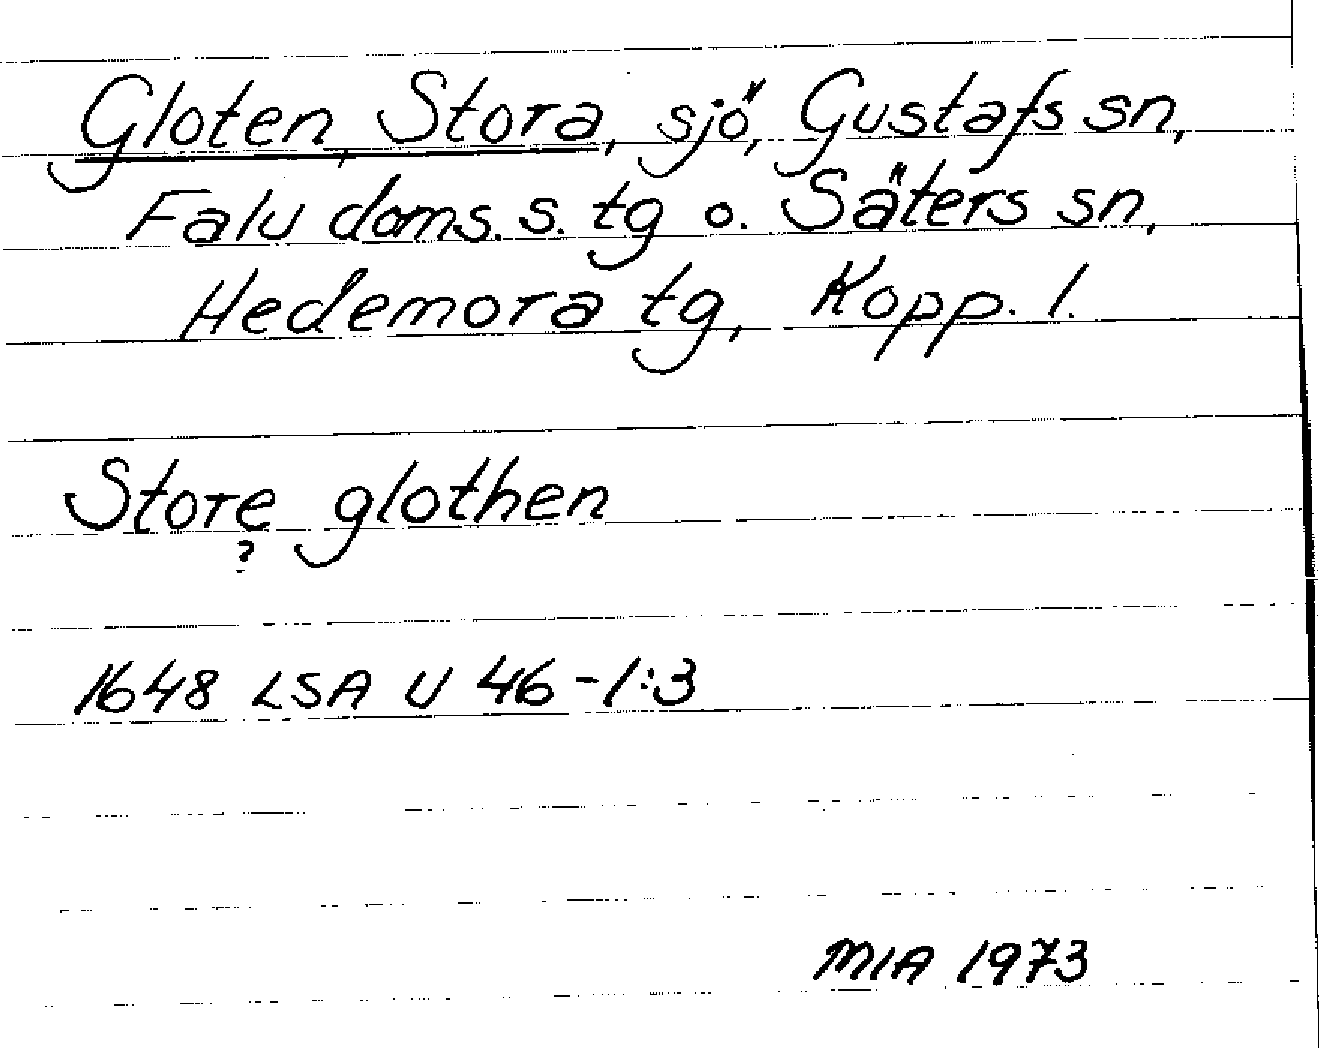 Gloten, Stora, sjö, Gustafs sn,
Falu doms. s. tg o. Säters sn,
Hedemora tg, Kopp. l.
Store glothen
?
1648 LSA U 46-1:3
MIA 1973